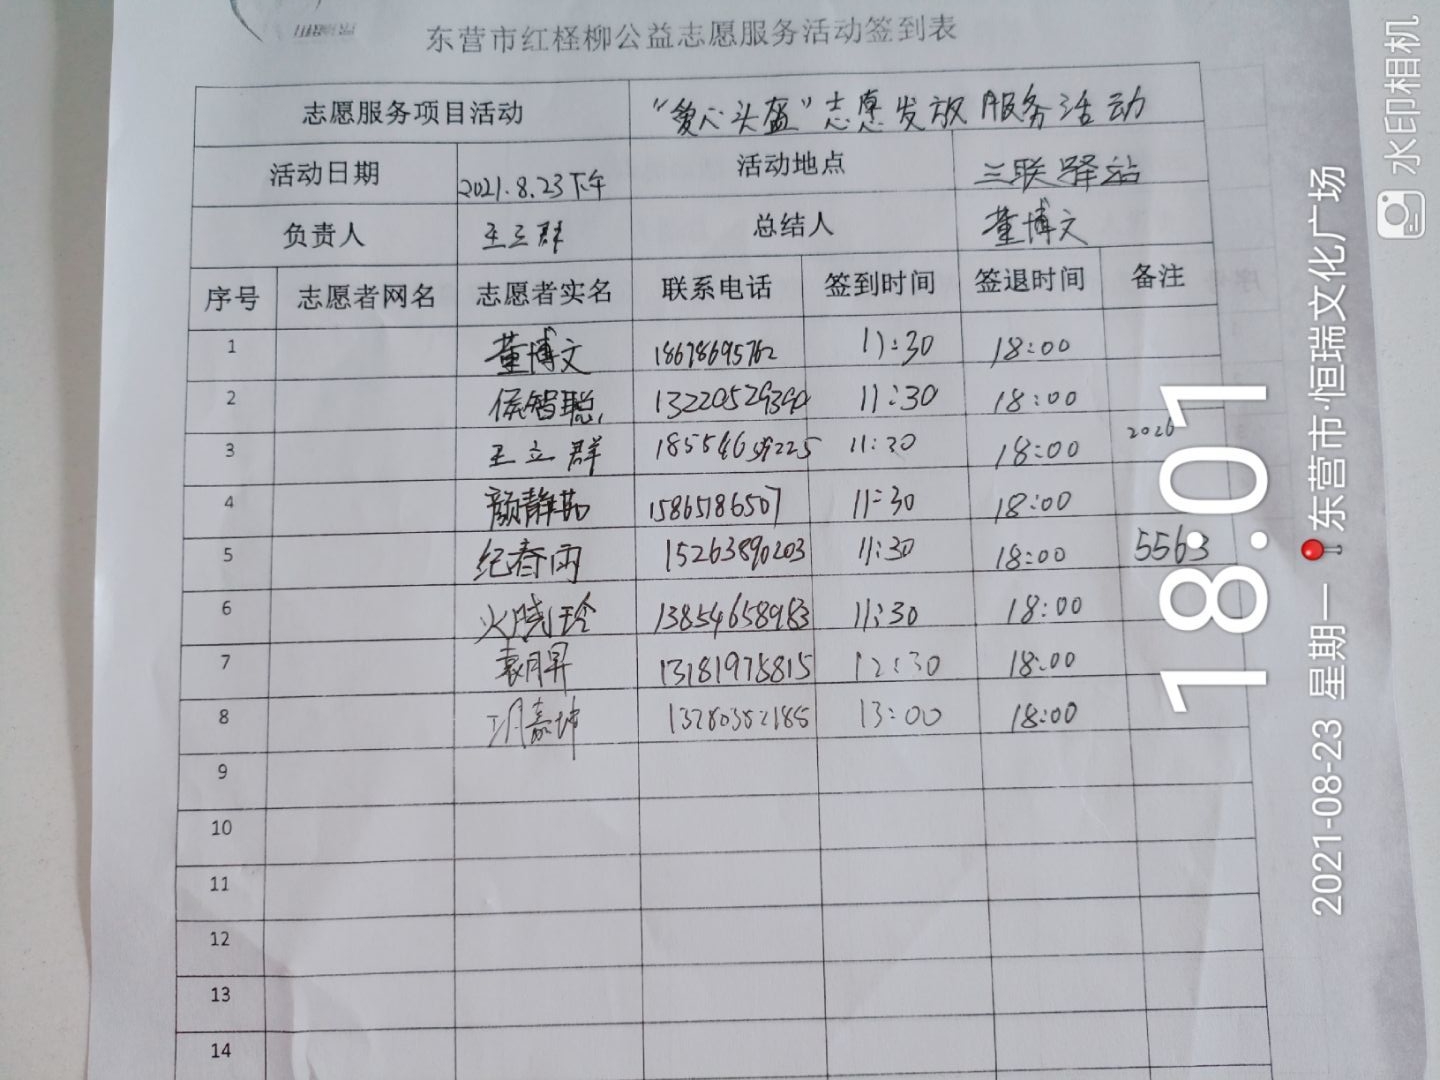 东营市红柽柳公益志愿服务活动签到表
志愿服务项目活动 “爱心头盔”志愿发放服务活动
活动日期 2021.8.23下午 活动地点 三联驿站
负责人 王立群 总结人 董博文
序号 志愿者网名 志愿者实名 联系电话 签到时间 签退时间 备注
1 董博文 18678695762 11:30 18:00
2 侯智聪 13220529390 11:30 18:00
3 王立群 11:30 18:00 2026
4 颜静茹 15865186507 11:30 18:00
5 纪春雨 15263890203 11:30 18:00 5563
6 火晓玲 13854658983 11:30 18:00
7 13181978815 12:30 18:00
8 13280382185 13:00 18:00
9
10
11
12
13
14
18:01
2021-08-23 星期一 东营市·恒瑞文化广场
水印相机